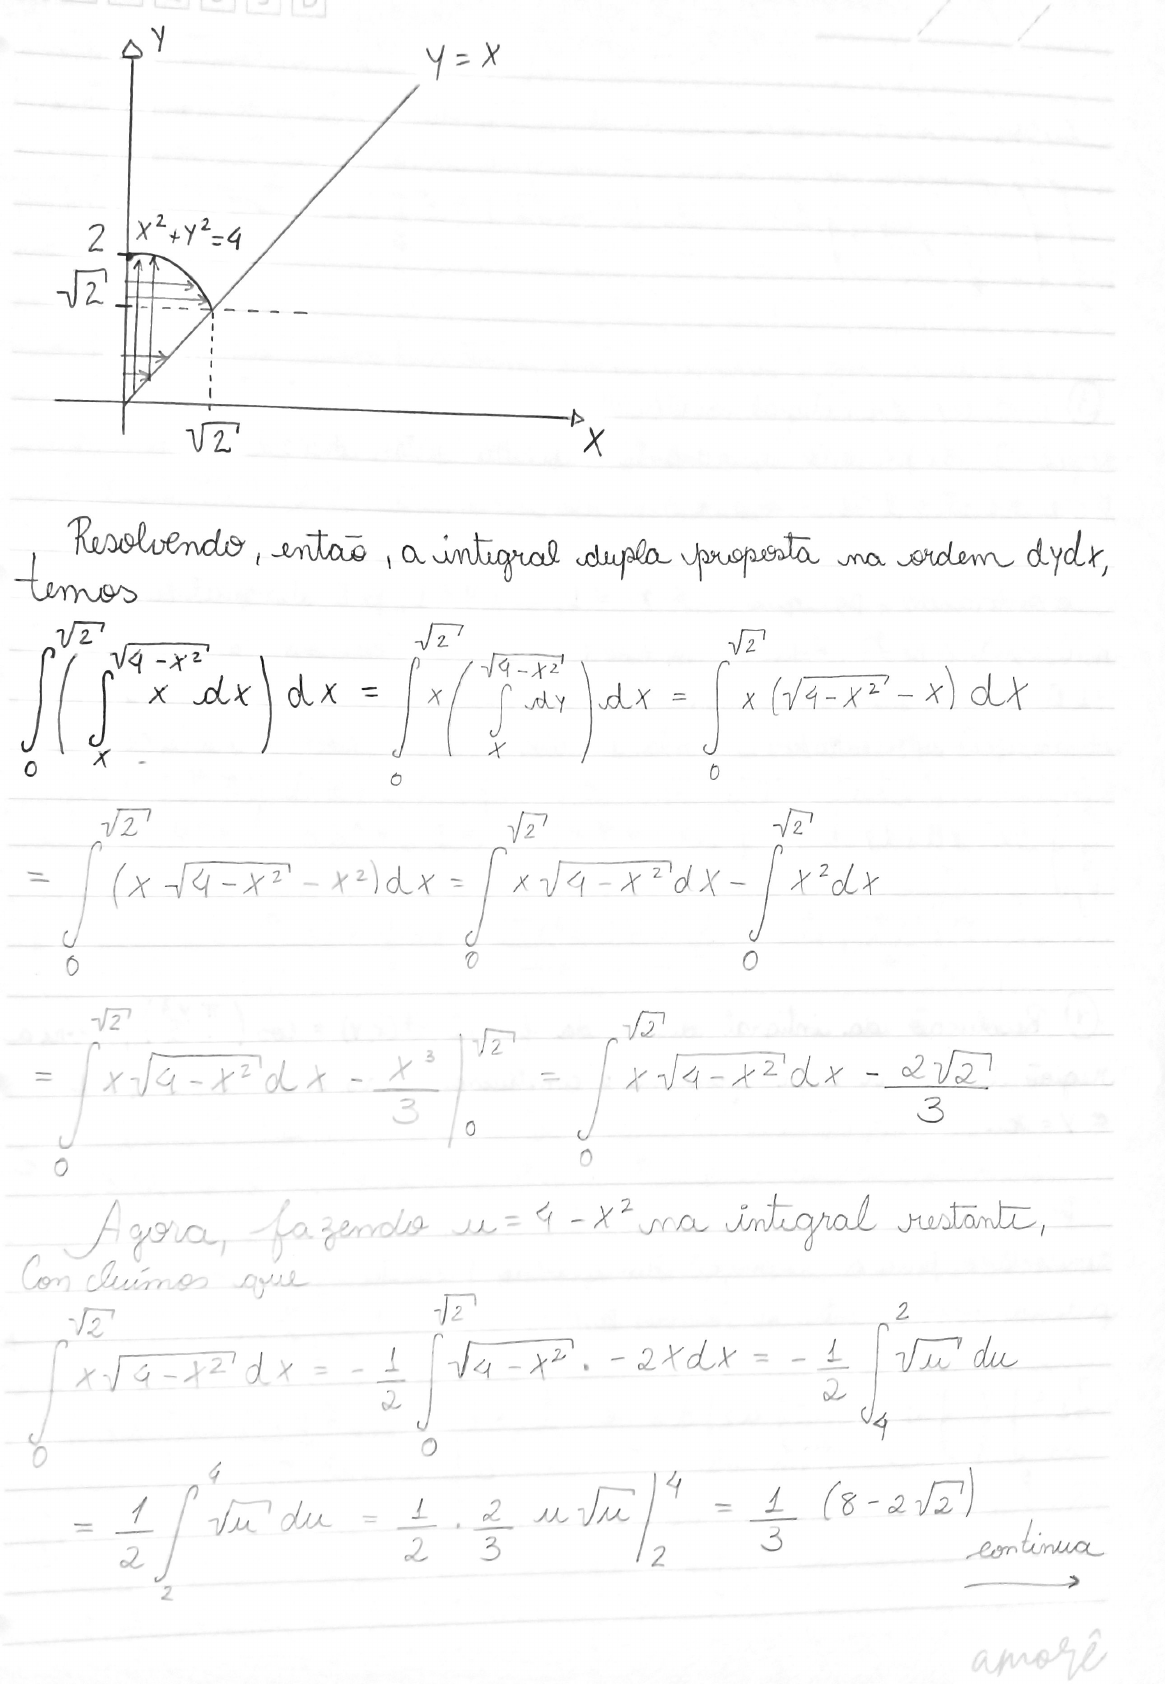 Y
Y = X
2
X² + Y² = 4
√2
√2
X
Resolvendo, então, a integral dupla proposta na ordem dydx,
temos
∫₀^√2 (∫ₓ^√(4-x²) x dx) dx = ∫₀^√2 x (∫ₓ^√(4-x²) dy) dx = ∫₀^√2 x (√(4-x²) - x) dx
= ∫₀^√2 (x √(4-x²) - x²) dx = ∫₀^√2 x √(4-x²) dx - ∫₀^√2 x² dx
= ∫₀^√2 x √(4-x²) dx - x³/3 |₀^√2 = ∫₀^√2 x √(4-x²) dx - 2√2/3
Agora, fazendo u = 4 - x² na integral restante,
Concluímos que
∫₀^√2 x √(4-x²) dx = -1/2 ∫₀^√2 √(4-x²) . -2xdx = -1/2 ∫₄² √u du
= 1/2 ∫₂⁴ √u du = 1/2 . 2/3 u √u |₂⁴ = 1/3 (8 - 2√2)
continua
amorê